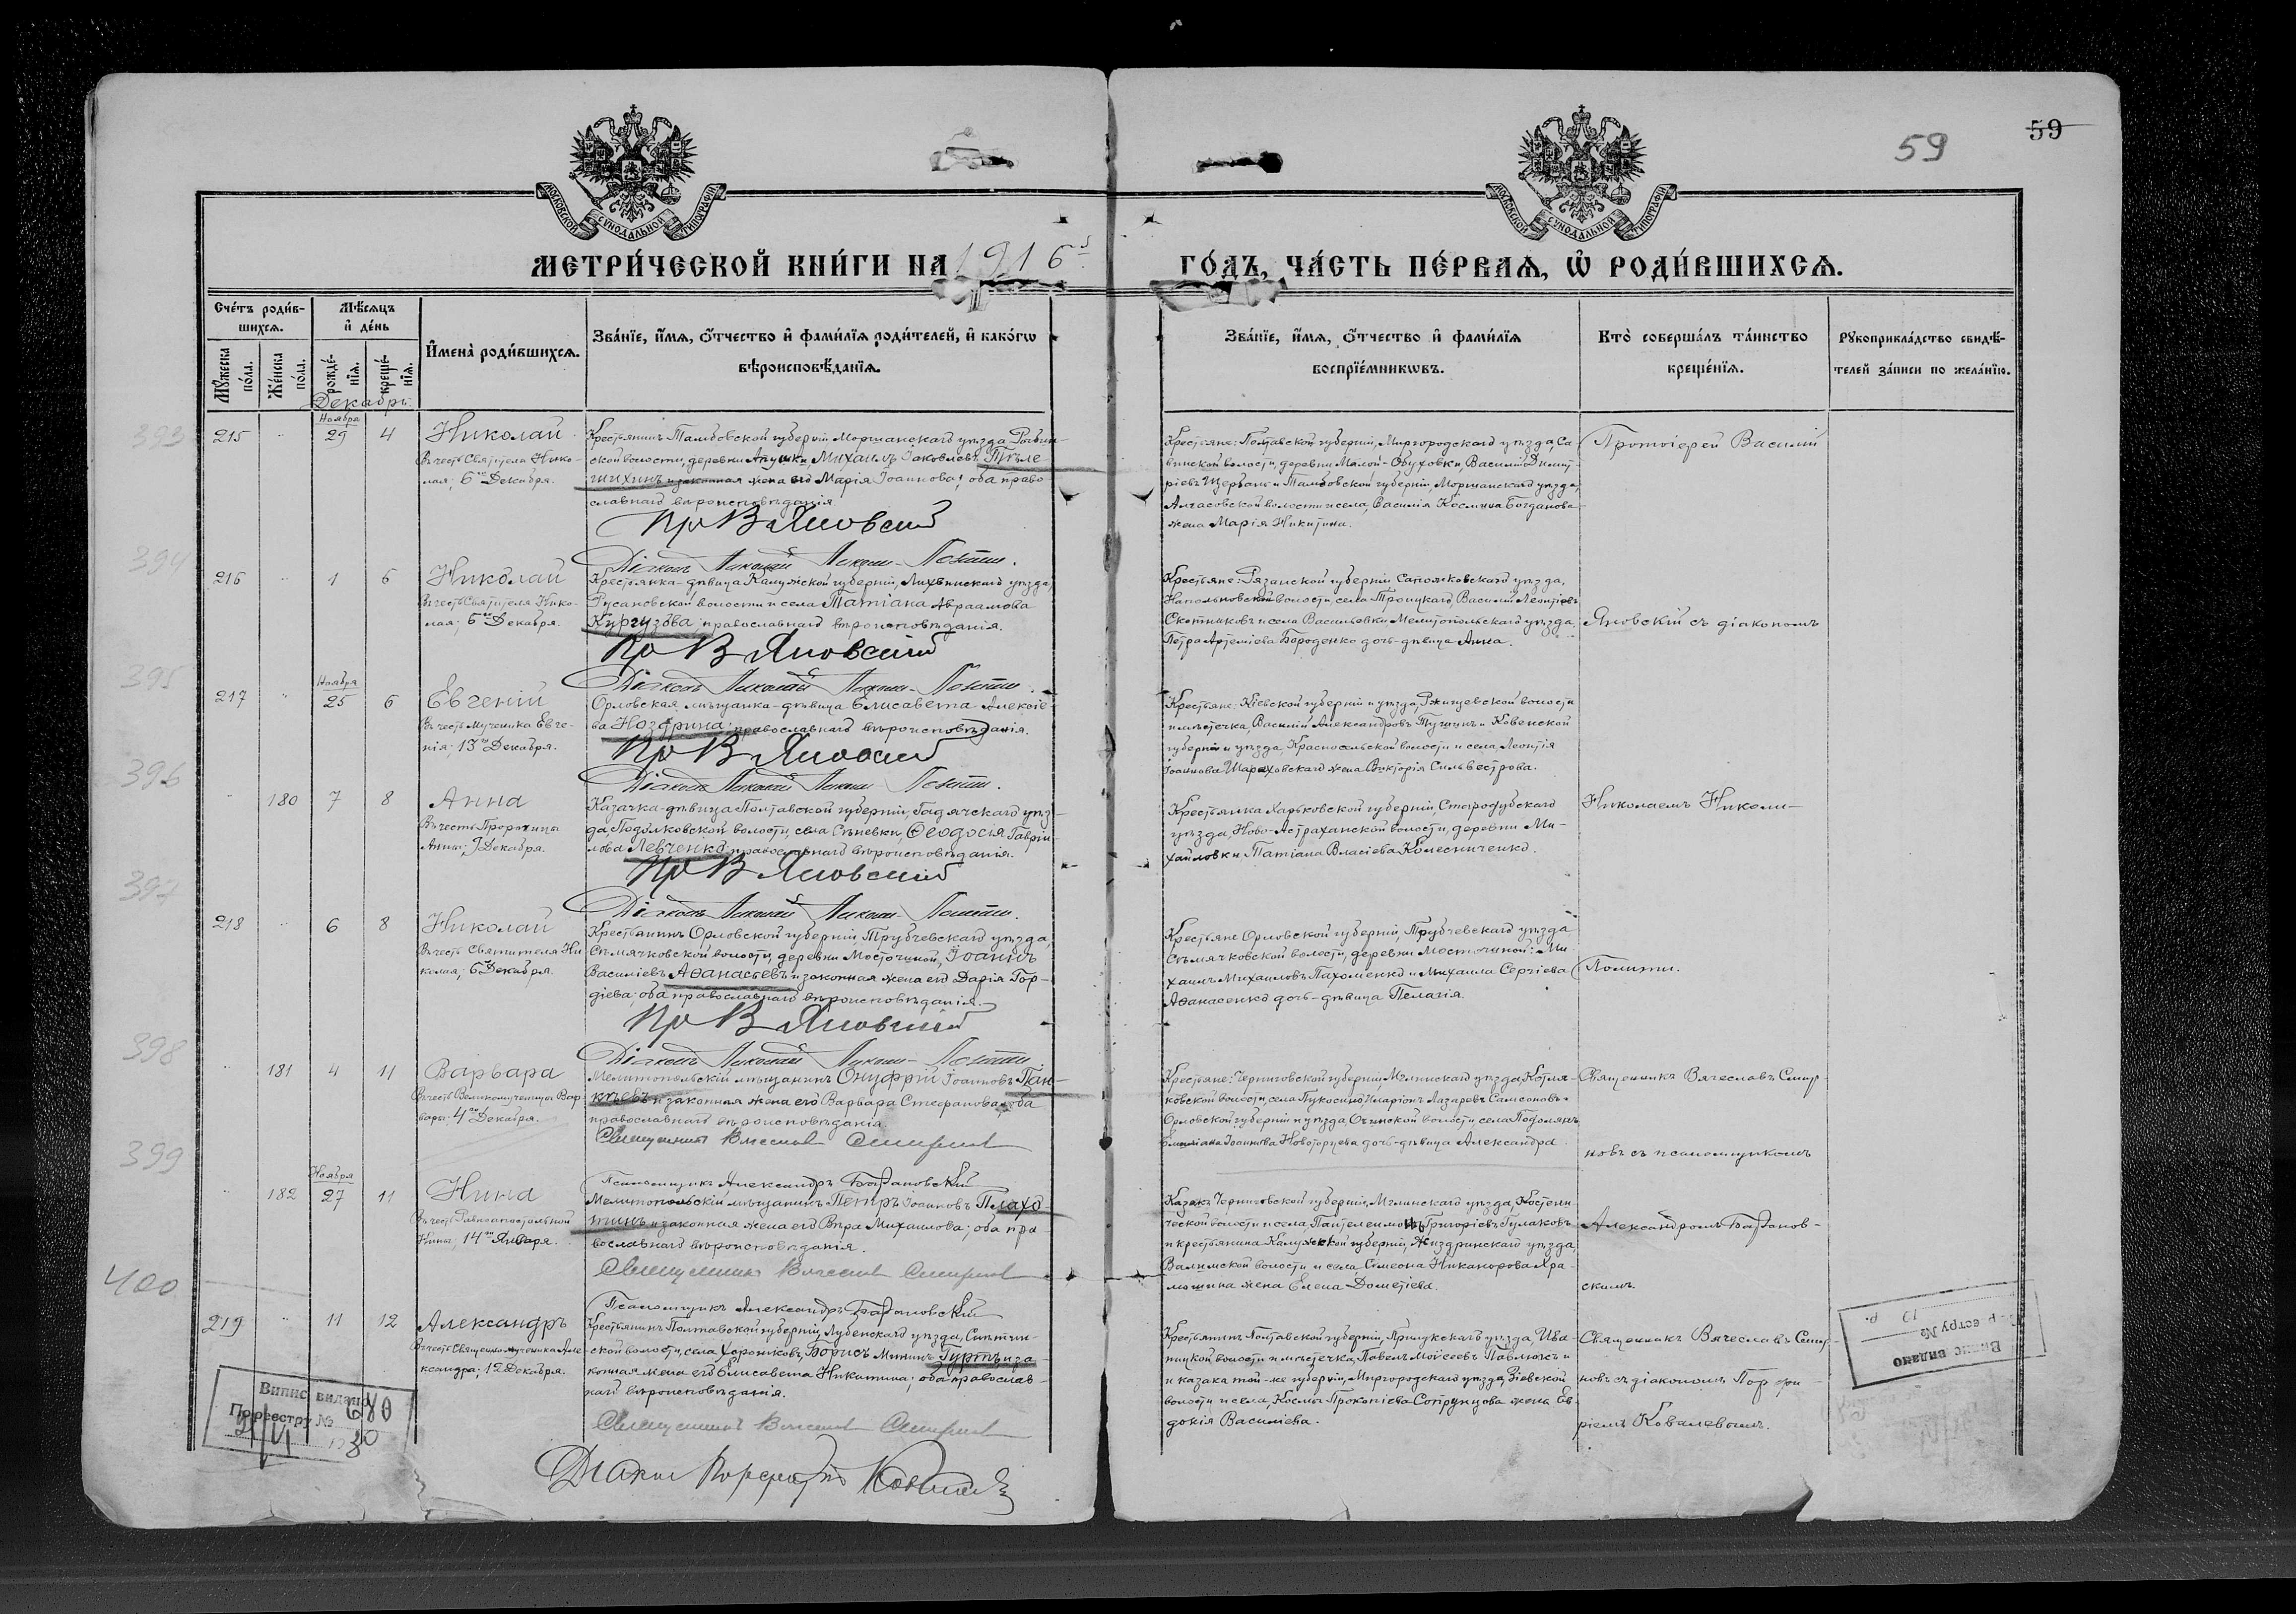 59
59
МОСКОВСКОЙ СѴНОДАЛЬНОЙ ТИПОГРАФІИ
МОСКОВСКОЙ СѴНОДАЛЬНОЙ ТИПОГРАФІИ
МЕТРИ́ЧЕСКОЙ КНИ́ГИ НА 1916 ГО́ДЪ, ЧА́СТЬ ПЕ́РВАѦ, Ѡ҆ РОДИ́ВШИХСѦ.
Сче́тъ роди́в-
шихсѧ.
Мꙋ́жеска по́ла.
Же́нска по́ла.
Мѣ́сѧцъ
и҆ де́нь
рожде́-
нїѧ.
креще́-
нїѧ.
И҆мена̀ роди́вшихсѧ.
Зва́нїе, и҆́мѧ, ѻ҆́тчество и҆ фами́лїѧ роди́телей, и҆ како́гѡ
вѣроисповѣ́данїѧ.
Зва́нїе, и҆́мѧ, ѻ҆́тчество и҆ фами́лїѧ
воспрїе́мникѡвъ.
Кто̀ соверша́лъ та́инство
креще́нїѧ.
Рꙋкоприкла́дство свидѣ́-
телей за́писи по жела́нїю.
Декабрь
393
215
Ноября
29
4
Николай
Въ честь Святителя Нико-
лая; 6го Декабря.
Крестьянинъ Тамбовской губерніи Моршанскаго уѣзда,
ской волости, деревни Михаилъ Іаковлевъ
и законная жена его Марія Іоаннова; оба право-
славнаго вѣроисповѣданія
Пр В Яновскій
Крестьяне: Полтавской губерніи, Миргородскаго уѣзда, Са-
винской волости, деревни Малой-Обуховки, Василій Димит-
ріевъ Щербань и Тамбовской губерніи, Моршанскаго уѣзда,
Алгасовской волости и села, Василія Космина Богданова
жена Марія Никитина.
Протоіерей Василій
394
216
1
6
Николай
Въ честь Святителя Нико-
лая; 6го Декабря.
Діаконъ Николай
Крестьянка-дѣвица Калужской губерніи, Лихвинскаго уѣзда,
Русановской волости и села Татіана Авраамова
Кургузова; православнаго вѣроисповѣданія.
Пр В Яновскій
Крестьяне: Рязанской губерніи Сапожковскаго уѣзда,
Напольновской волости, села Троицкаго, Василій Леонтіевъ
Скотниковъ и села Васильевки Мелитопольскаго уѣзда,
Петра Артеміева Бороденко дочь-дѣвица Анна.
Яновскій съ діакономъ
395
217
Ноября
25
6
Евгеній
Въ честь Мученика Евге-
нія; 13го Декабря.
Діаконъ Николай
Орловская мѣщанка-дѣвица Елисавета Алексіе-
ва Ноздрина; православнаго вѣроисповѣданія.
Пр В Яновскій
Крестьяне: Кіевской губерніи и уѣзда, Ржищевской волости
и мѣстечка, Василій Александровъ и Ковенской
губерніи и уѣзда, Красносельской волости и села, Леонтія
Іоаннова жена Викторія Сильвестрова.
396
180
7
8
Анна
Въ честь Пророчицы
Анны; 9 Декабря.
Діаконъ Николай
Казачка-дѣвица Полтавской губерніи, Гадячскаго уѣз-
да, Подолковской волости, села Сѣневки, Ѳеодосія Гаврі-
лова Левченко; православнаго вѣроисповѣданія.
Пр В Яновскій
Крестьянка Харьковской губерніи, Старобѣльскаго
уѣзда, Ново-Астраханской волости, деревни Ми-
хайловки Татіана Власіева Колесниченко.
Николаемъ
397
218
6
8
Николай
Въ честь Святителя Ни-
колая; 6 Декабря.
Діаконъ Николай
Крестьянинъ Орловской губерніи, Трубчевскаго уѣзда,
Сѣмячковской волости, деревни Мосточиной, Іоаннъ
Василіевъ Аѳанасьевъ и законная жена его Дарія Гор-
діева; оба православнаго вѣроисповѣданія.
Пр В Яновскій
Крестьяне Орловской губерніи, Трубчевскаго уѣзда
Сѣмячковской волости, деревни Мосточиной: Ми-
хаилъ Михаиловъ Пахоменко и Михаила Сергіева
Аѳанасенко дочь-дѣвица Пелагія.
398
181
4
11
Варвара
Въ честь Великомученицы Вар-
вары; 4го Декабря.
Діаконъ Николай
Мелитопольскій мѣщанинъ Онуфрій Іоанновъ Пан-
и законная жена его Варвара Стефанова; оба
православнаго вѣроисповѣданія.
Священникъ Вячеславъ Смирновъ
Крестьяне: Черниговской губерніи, Мглинскаго уѣзда, Котля-
ковской волости, села Иларіонъ Лазаревъ Самсоновъ и
Орловской губерніи и уѣзда волости, села
Іоаннова дочь-дѣвица Александра.
Священникъ Вячеславъ Смир-
новъ съ псаломщикомъ
399
182
Ноября
27
11
Нина
Въ честь Равноапостольной
Нины; 14го Января.
Псаломщикъ Александръ
Мелитопольскій мѣщанинъ Петръ Іоанновъ Плахо-
тинъ и законная жена его Вѣра Михаилова; оба пра-
вославнаго вѣроисповѣданія.
Священникъ Вячеславъ Смирновъ
Казакъ Черниговской губерніи, Мглинскаго уѣзда, Костени-
ческой волости и села, Пантелеимонъ Григоріевъ Гулаковъ
и крестьянина Калужской губерніи, Жиздринскаго уѣзда,
волости и села, Симеона Никанорова Хра-
жена Елена Дометіева.
Александромъ
скимъ.
400
219
11
12
Александръ
Въ честь Священномученика Але-
ксандра; 12 Декабря.
Псаломщикъ Александръ
Крестьянинъ Полтавской губерніи, Лубенскаго уѣзда, Снѣтин-
ской волости, села Хорошковъ, Борисъ Мининъ и за-
конная жена его Елисавета Никитина; оба православ-
наго вѣроисповѣданія.
Священникъ Вячеславъ Смирновъ
Крестьянинъ Полтавской губерніи, Прилукскаго уѣзда, Ива-
ницкой волости и мѣстечка, Павелъ Моисеевъ Павлюкъ и
и казака той-же губерніи, Миргородскаго уѣзда, Зіевской
волости и села, Космы Прокопіева жена Ев-
докія Василіева.
Священникъ Вячеславъ Смир-
новъ съ діакономъ Порфи-
ріемъ Ковалевымъ.
Випис видано
По реестру № 680
Випис видано
естру №
19 р.